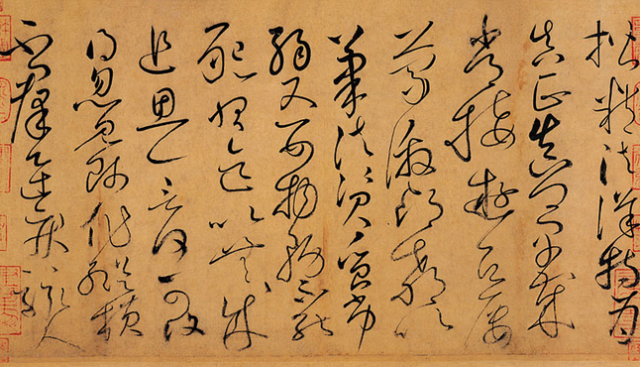 楷精法詳特為
真正真卿早歲
常接遊居屢
蒙激昂教以
筆法資質劣
弱又嬰物務不能
懇習迄以無成
追思一言何可復
得忽見師作縱橫
不群迅疾駭人